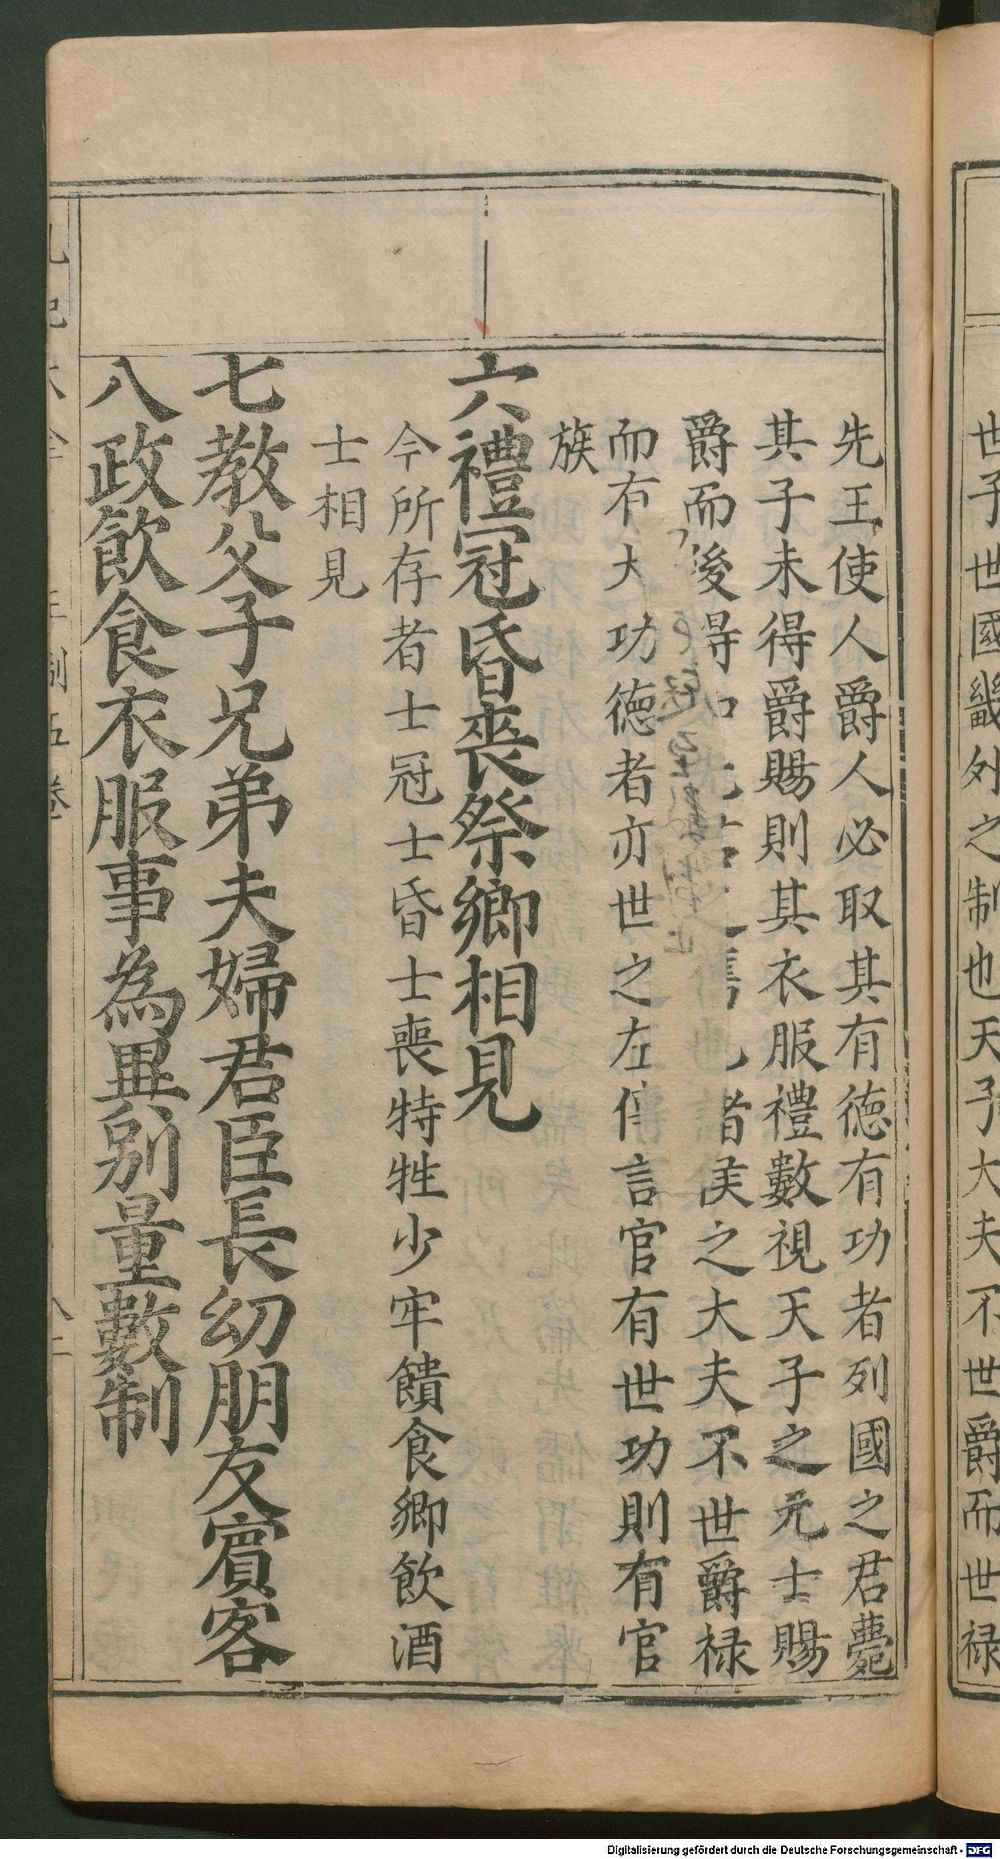 世子世國畿外之制也天子大夫不世爵而世禄
先王使人爵人必取其有徳有功者列國之君薨
其子未得爵賜則其衣服禮數視天子之元士賜
爵而後得 舊 者矦之大夫不世爵禄
而有大功徳者亦世之左傳言官有世功則有官
族
六禮冠昏喪祭鄉相見
今所存者士冠士昏士喪特牲少牢饋食鄉飲酒
士相見
七教父子兄弟夫婦君臣長幼朋友賓客
八政飲食衣服事為異别量數制
王制五卷
Digitalisierung gefördert durch die Deutsche Forschungsgemeinschaft - DFG